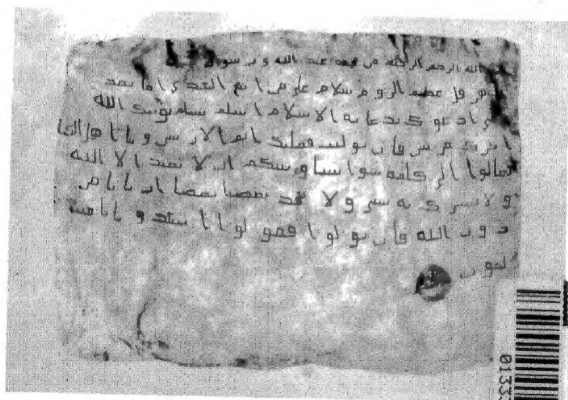 الله الرحمن الرحيم من محمد عبد الله ورسوله
هرقل عظيم الروم سلام على من اتبع الهدى اما بعد
ادعوك بدعاية الاسلام اسلم تسلم يوتك الله
اجرك مرتين فان توليت فعليك اثم الاريسين ويا اهل الكتا
تعالوا الى كلمة سوا بيننا وبينكم ان لا نعبد الا الله
ولا نشرك به شيا ولا يتخذ بعضنا بعضا اربابا من
دون الله فان تولوا فقولوا اشهدوا بانا مسـ
لمون
0133